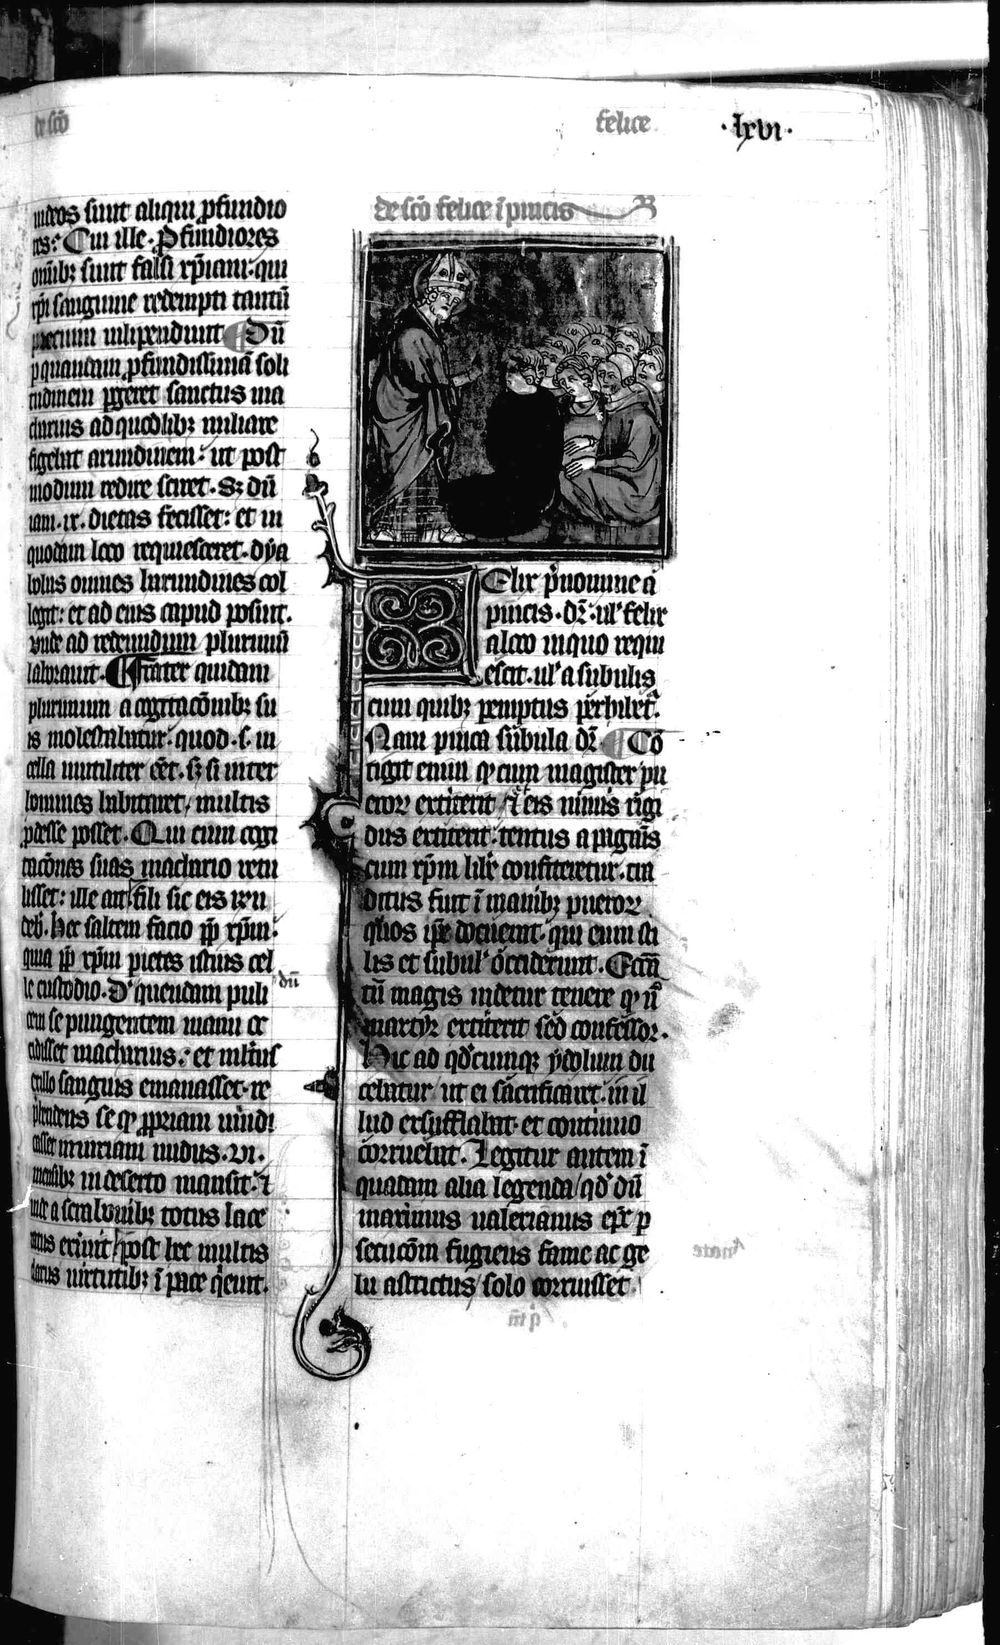 de sc̄o
felice
·lxvi·
uideos sunt aliqui ꝓfundio
res: Cui ille. Profundiores
om̄ibꝫ sunt falsi xp̄iani: qui
xp̄i sanguine redempti tantū
precium uilipendunt ¶ Dū
ꝑ quandam ꝓfundissimā soli
tudinem ꝑgeret sanctus ma
charius ad quodlibꝫ miliare
figebat arundinem: ut post
modum redire sciret. Sꝫ dū
iam .ix. dietas fecisset: et in
quodam loco requiesceret. dẏa
bolus omnes harundines col
legit: et ad eius capud posuit.
vnde ad redeundum plurimū
laborauit. ¶ Frater quidam
plurimum a cogitacōnibꝫ su
is molestabatur. quod .s. in
cella inutiliter eēt. sꝫ si inter
homines habitaret, multis
ꝓdesse posset. Qui cum cogi
tacōnes suas machario retu
lisset: ille ait fili sic eis rn̄
deb̄. hec saltem facio ꝓp̄ xp̄m:
quia ꝓp̄ xp̄m pietes istius cel
le custodio. Dꝰ quendam puli
dū
cem se pungentem manu oc
cidisset macharius: et multus
ex illo sanguis emanasset. re
p̄hendens se qꝫ ꝓpriam uindi
casset iniuriam nudus .vi.
mensibꝫ in deserto mansit: ⁊
inde a scabronibꝫ totus lace
ratus exiuit post hec multis
clarus uirtutibꝫ ī pace q̄euit.
de sc̄o felice ī pincis R
Felix p̄nomine ī
pincis. dꝛ̄. ul' felix
a loco in quo requi
escit. ul' a subulis
cum quibꝫ ꝑemptus perhibet᷑.
Nam pinca subula dꝛ̄. ¶ Cō
tigit enim qꝫ cum magister pu
erorꝝ extiterit ⁊ eis nimis rigi
dus extiterit: tentus a paganis
cum xp̄m libe᷑ confiteretur. tra
ditus fuit ī manibꝫ puerorꝝ
quos ip̄e docuerat. qui eum sti
lis et subul' occiderunt. Ecc̄a
tn̄ magis uidetur tenere qꝫ nō
martẏr extiterit sed confessor.
Hic ad qd̄cumqꝫ ẏdolum du
cebatur ut ei sacrificaret. in il
lud exsufflabat. et continuo
corruebat. Legitur autem ī
quadam alia legenda qd̄ dū
maximus ualerianus ep̄c ꝑ
secucōm fugiens fame ac ge
lu astrictus solo corruisset